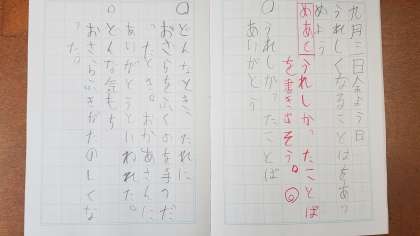 九月二日金よう日
うれしくなることばをあつ
めよう
めあて うれしかったことば
を書き出そう。
○うれしかったことば
ありがとう
○どんなとき、だれに
おさらをふくのを手つだ
ったとき。おかあさんに
ありがとうといわれた。
○どんな気もち
おさらふきがたのしくな
った。